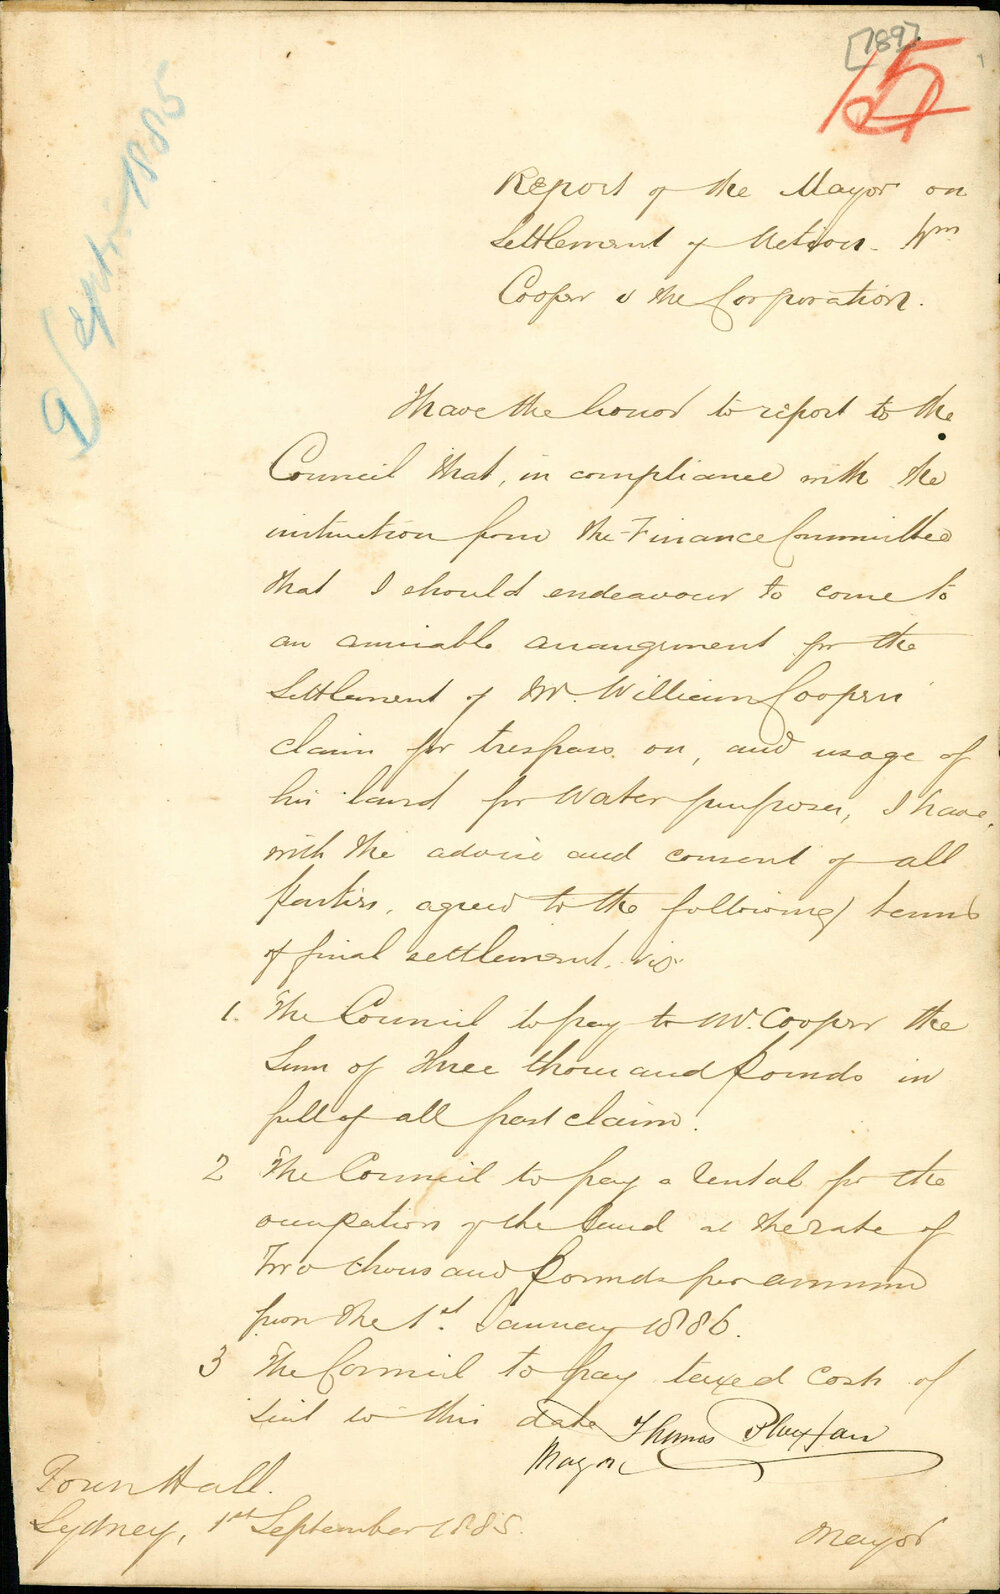 [189]
15
9 Septr 1885
Report of the Mayor on
Settlement of Action. Wm
Cooper v the Corporation.
I have the honor to report to the
Council that, in compliance with the
instruction from the Finance Committee
that I should endeavour to come to
an amicable arrangement for the
Settlement of Mr. William Coopers'
claim for trespass on, and usage of
his land for Water purposes, I have,
with the advice and consent of all
parties, agreed to the following terms
of final settlement, viz.
1. The Council to pay to Mr. Cooper the
Sum of three thousand pounds in
full of all past claim.
2 The Council to pay a rental for the
occupation of the land at the rate of
Two thousand pounds per annum
from the 1st. January 1886.
3 The Council to pay taxed costs of
suit to this date
Thomas Playfair
Mayor
Town Hall.
Sydney, 1st September 1885.
Mayor